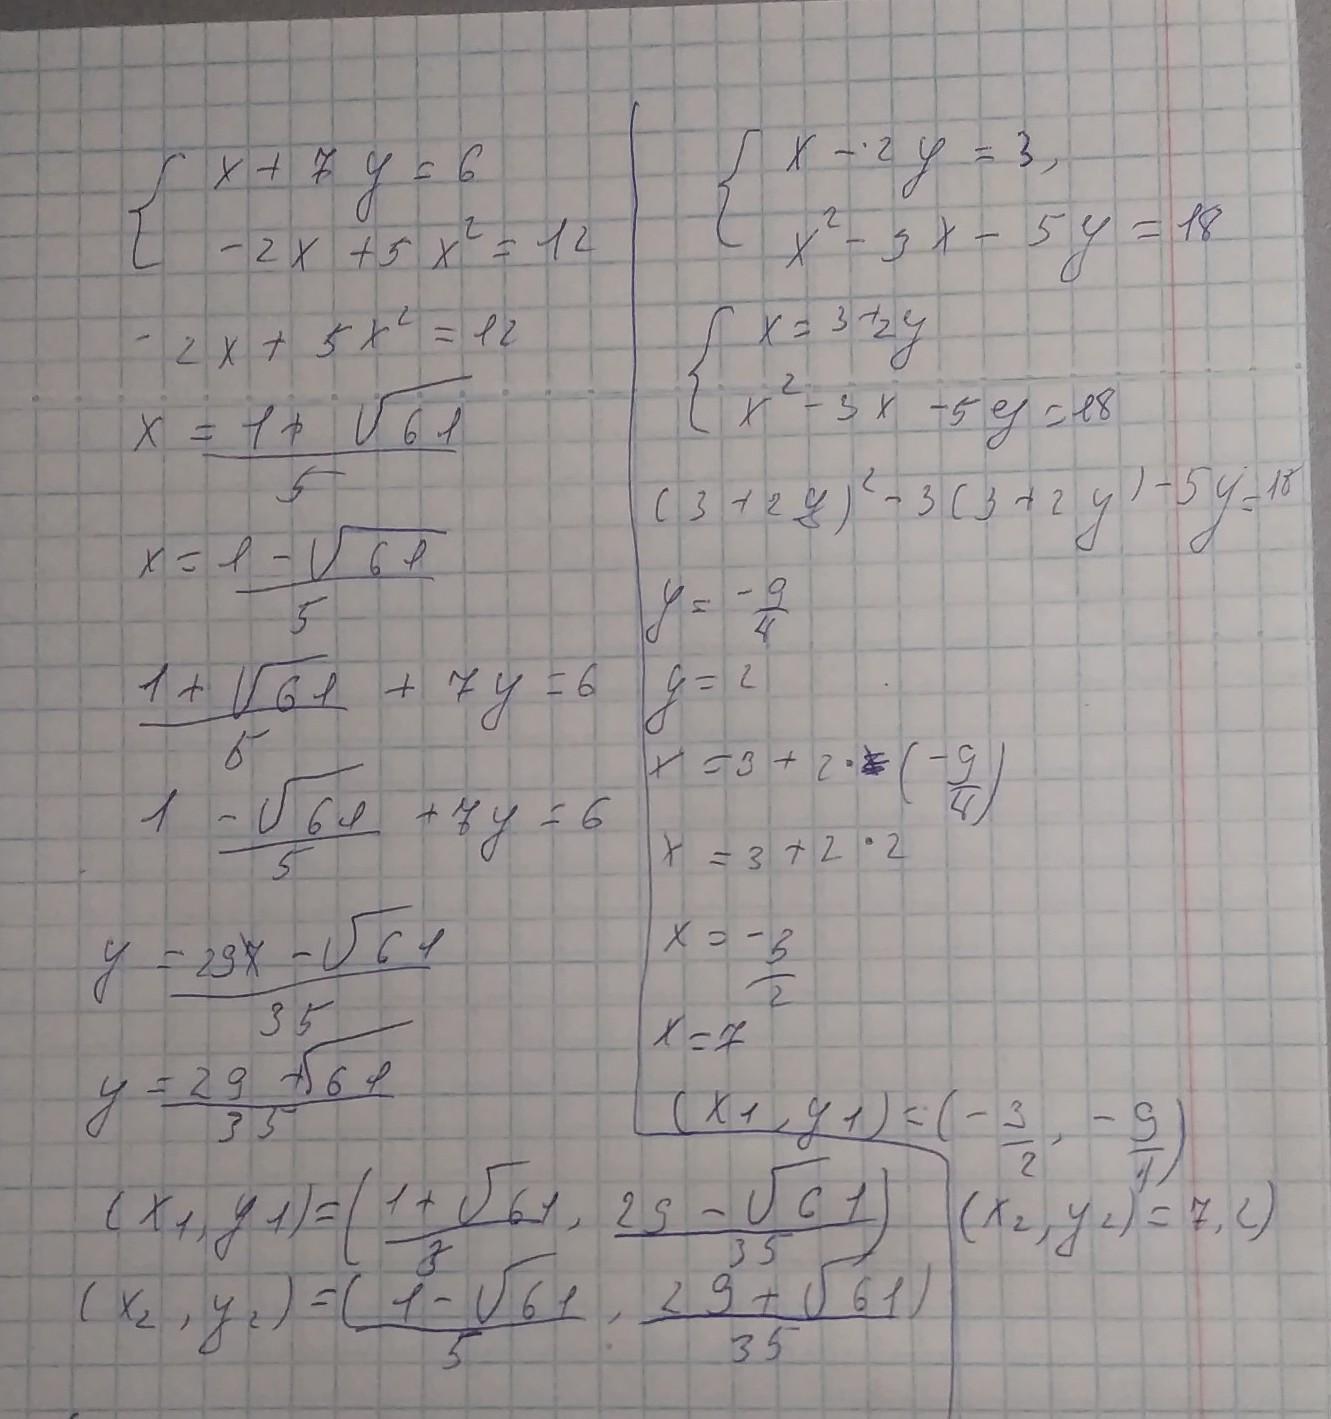 x + 7y = 6
-2x + 5x² = 12
-2x + 5x² = 12
x = 1+ √61 / 5
x = 1 - √61 / 5
1 + √61 / 5 + 7y = 6
1 - √61 / 5 + 7y = 6
y = 29 - √61 / 35
y = 29 + √61 / 35
(x1, y1) = (1 + √61 / 5, 29 - √61 / 35)
(x2, y2) = (1 - √61 / 5, 29 + √61 / 35)
x - 2y = 3,
x² - 3x - 5y = 18
x = 3 + 2y
x² - 3x - 5y = 18
(3 + 2y)² - 3(3 + 2y) - 5y = 18
y = -9/4
y = 2
x = 3 + 2 · (-9/4)
x = 3 + 2 · 2
x = -3/2
x = 7
(x1, y1) = (-3/2, -9/4)
(x2, y2) = 7, 2)